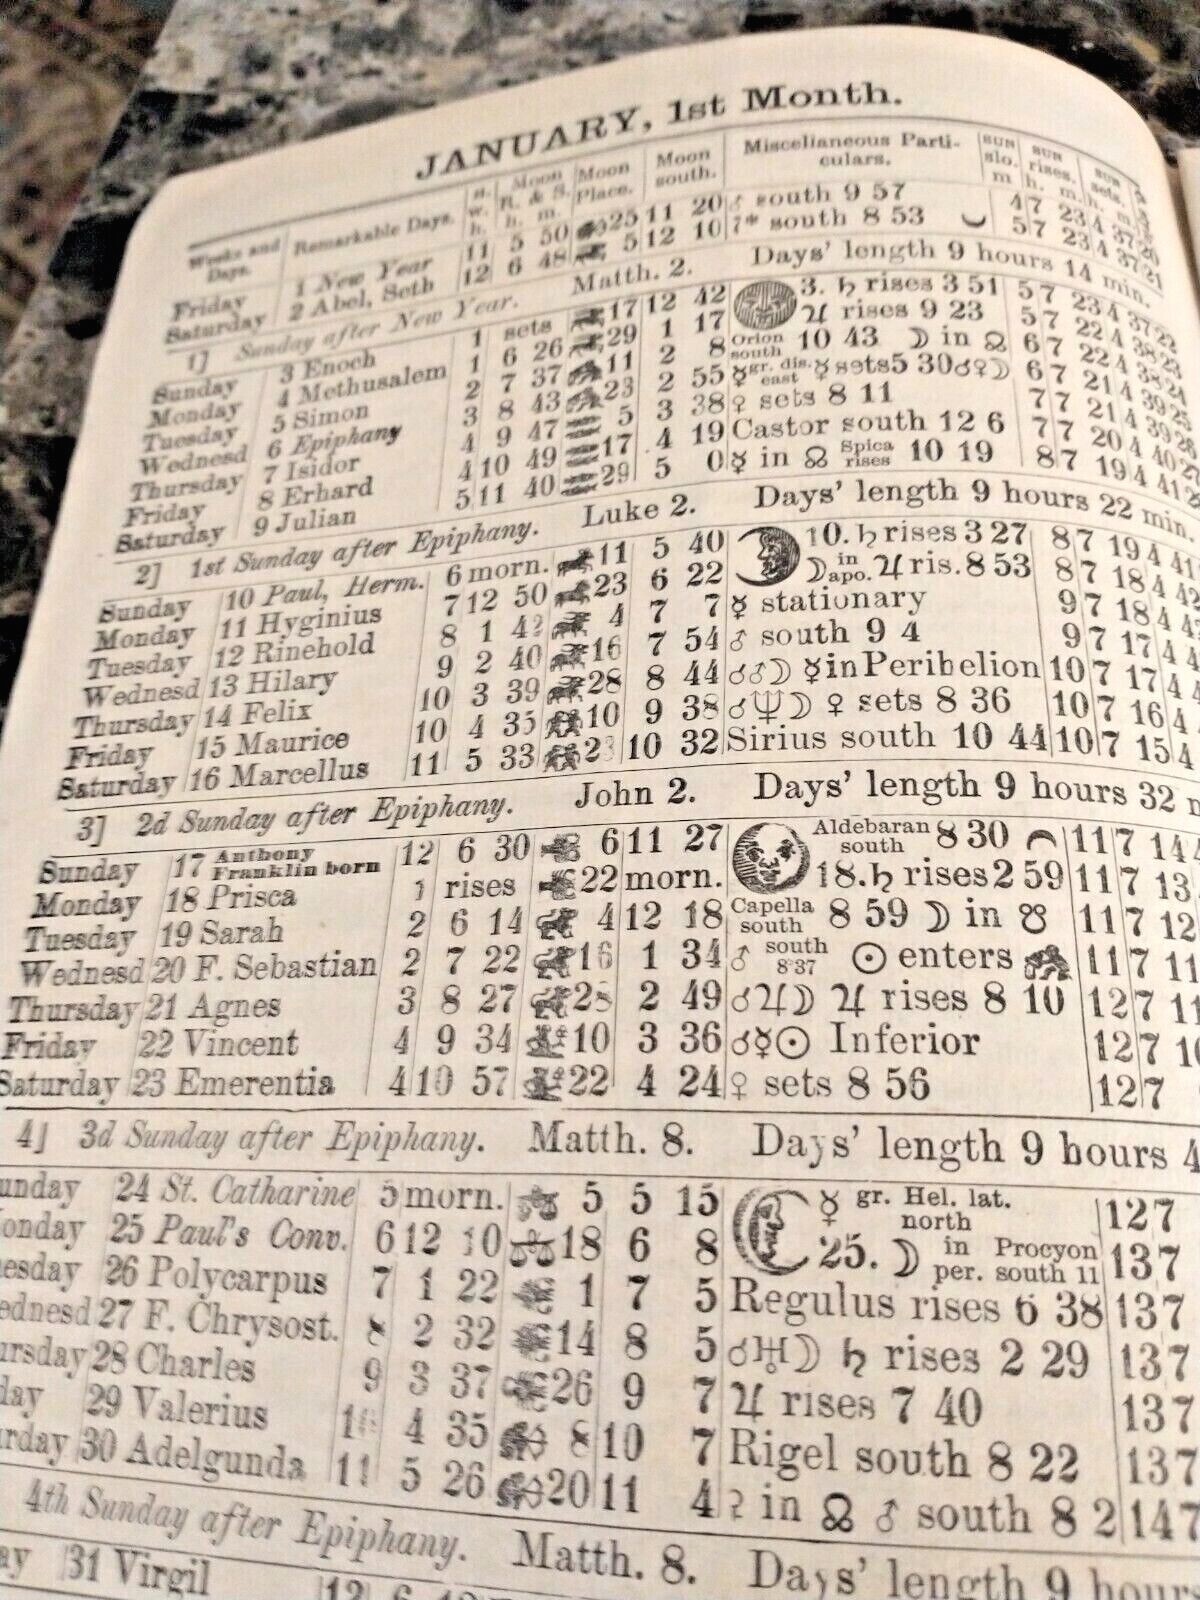 JANUARY, 1st Month.
Weeks and Days. Remarkable Days. h. w. h. Moon R. & S. h. m. Moon Place. Moon south. Miscellaneous Particulars. SUN slo. m SUN rises. h. m. SUN sets. h. m.
Friday 1 New Year 11 5 50 25 11 20 ♂ south 9 57 4 7 23 4 37 20
Saturday 2 Abel, Seth 12 6 48 5 12 10 7* south 8 53 5 7 23 4 37 21
1] Sunday after New Year. Matth. 2. Days' length 9 hours 14 min.
Sunday 3 Enoch 1 sets 17 12 42 3. ♄ rises 3 51 5 7 23 4 37 22
Monday 4 Methusalem 1 6 26 29 1 17 ♃ rises 9 23 5 7 22 4 38 23
Tuesday 5 Simon 2 7 37 11 2 8 Orion south 10 43 ☽ in ☊ 6 7 22 4 38 24
Wednesd 6 Epiphany 3 8 43 23 2 55 ☿ gr. dis. east ☿ sets 5 30 ☌♀☽ 6 7 21 4 39 25
Thursday 7 Isidor 4 9 47 5 3 38 ♀ sets 8 11 7 7 21 4 39 26
Friday 8 Erhard 4 10 49 17 4 19 Castor south 12 6 7 7 20 4 40 27
Saturday 9 Julian 5 11 40 29 5 0 ☿ in ☊ Spica rises 10 19 8 7 19 4 41
2] 1st Sunday after Epiphany. Luke 2. Days' length 9 hours 22 min.
Sunday 10 Paul, Herm. 6 morn. 11 5 40 10. ♄ rises 3 27 8 7 19 4 41
Monday 11 Hyginius 7 12 50 23 6 22 ☽ in apo. ♃ ris. 8 53 8 7 18 4 42
Tuesday 12 Rinehold 8 1 42 4 7 7 ☿ stationary 9 7 18 4
Wednesd 13 Hilary 9 2 40 16 7 54 ♂ south 9 4 9 7 17 4
Thursday 14 Felix 10 3 39 28 8 44 ☌♂☽ ☿ in Perihelion 10 7 17 4
Friday 15 Maurice 10 4 35 10 9 38 ☌♆☽ ♀ sets 8 36 10 7 16 4
Saturday 16 Marcellus 11 5 33 23 10 32 Sirius south 10 44 10 7 15 4
3] 2d Sunday after Epiphany. John 2. Days' length 9 hours 32
Sunday 17 Anthony Franklin born 12 6 30 6 11 27 Aldebaran south 8 30 11 7 14
Monday 18 Prisca 1 rises 22 morn. 18. ♄ rises 2 59 11 7 13
Tuesday 19 Sarah 2 6 14 4 12 18 Capella south 8 59 ☽ in ☋ 11 7 12
Wednesd 20 F. Sebastian 2 7 22 16 1 34 ♂ south 8 37 ☉ enters 11 7 11
Thursday 21 Agnes 3 8 27 28 2 49 ☌♃☽ ♃ rises 8 10 12 7 11
Friday 22 Vincent 4 9 34 10 3 36 ☌☿☉ Inferior 12 7 10
Saturday 23 Emerentia 4 10 57 22 4 24 ♀ sets 8 56 12 7
4] 3d Sunday after Epiphany. Matth. 8. Days' length 9 hours 4
unday 24 St. Catharine 5 morn. 5 5 15 ☿ gr. Hel. lat. north 12 7
onday 25 Paul's Conv. 6 12 10 18 6 8 25. ☽ in per. Procyon south 11 13 7
esday 26 Polycarpus 7 1 22 1 7 5 Regulus rises 6 38 13 7
ednesd 27 F. Chrysost. 8 2 32 14 8 5 ☌♅☽ ♄ rises 2 29 13 7
ursday 28 Charles 9 3 37 26 9 7 ♃ rises 7 40 13 7
day 29 Valerius 4 35 8 10 7 Rigel south 8 22 13 7
urday 30 Adelgunda 11 5 26 20 11 4 in ☊ ♂ south 8 2 14 7
4th Sunday after Epiphany. Matth. 8. Days' length 9 hours
ay 31 Virgil 12 6